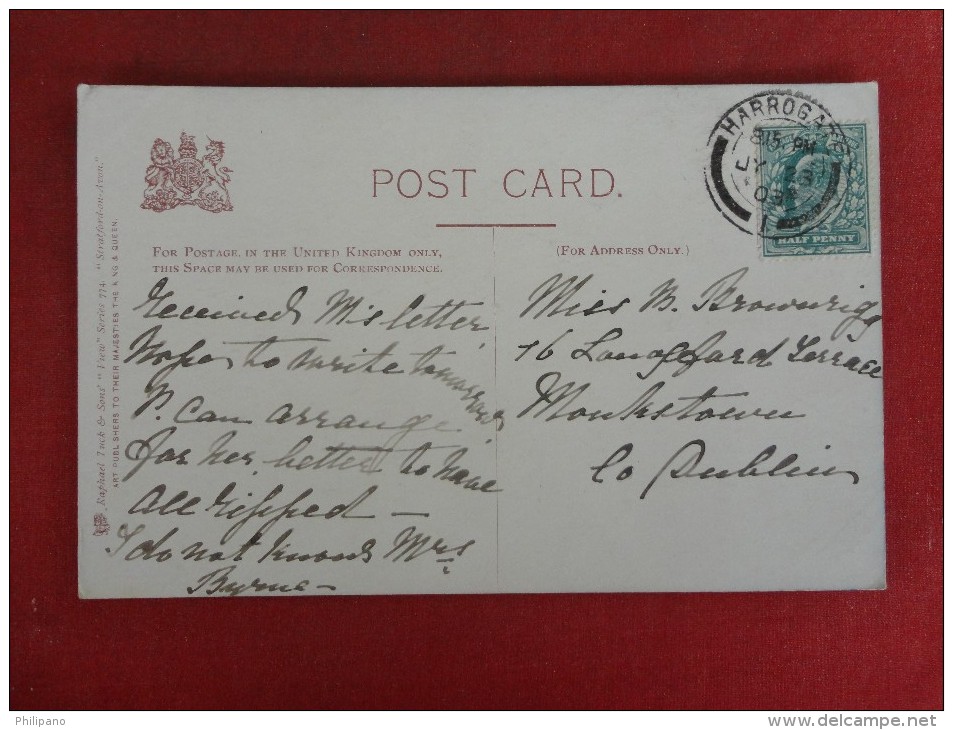 POST CARD.
FOR POSTAGE, IN THE UNITED KINGDOM ONLY,
THIS SPACE MAY BE USED FOR CORRESPONDENCE.
(FOR ADDRESS ONLY.)
Raphael Tuck & Sons' "View" Series 774. "Stratford-on-Avon."
ART PUBLISHERS TO THEIR MAJESTIES THE KING & QUEEN.
HARROGATE
815 PM
JY
03
1
HALF PENNY
Received M's letter
hope to write tomorrow
P. can arrange
for her, better to have
all ripped —
I do not know Mrs
Byrne —
Miss B. Brownrigg
16 Longford Terrace
Monkstown
Co Dublin
Philipano
www.delcampe.net